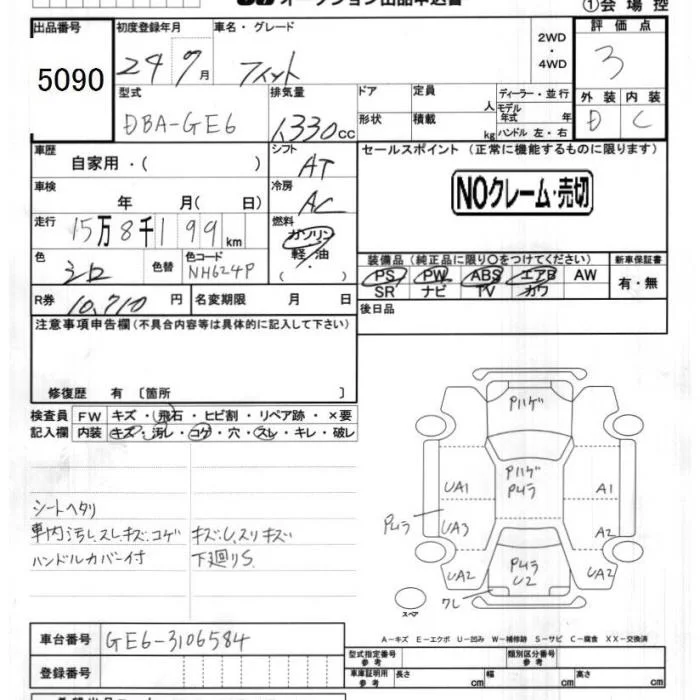 オークション出品申込書
①会場控
出品番号 5090
初度登録年月 24 7月
車名・グレード フィット
2WD・4WD
評価点 3
型式 DBA-GE6
排気量 1,330cc
ドア
定員 人
形状
積載 kg
ディーラー・並行
モデル年式 年
ハンドル 左・右
外装 D
内装 C
車歴 自家用・( )
シフト AT
セールスポイント (正常に機能するものに限ります)
NOクレーム・売切
車検 年 月( 日)
冷房 AC
走行 15万8千199km
燃料 ガソリン・軽油・( )
色 シロ
色替
色コード NH624P
装備品 (純正品に限り○をつけてください)
新車保証書
PS PW ABS エアB AW
SR ナビ TV カワ
有・無
R券 10,710円
名変期限 月 日
後日品
注意事項申告欄(不具合内容等は具体的に記入して下さい)
修復歴 有 〔箇所 〕
検査員記入欄
FW キズ・飛石・ヒビ割・リペア跡・×要
内装 キズ・汚レ・コゲ・穴・スレ・キレ・破レ
シートヘタリ
車内汚レスレキズ・コゲ
ハンドルカバー付
キズ・U、スリキズ
下廻りS.
Pハゲ
Pハゲ
Pムラ
UA1
A1
Pムラ
UA3
A2
UA2
Pムラ
U2
UA2
ワレ
スペア
A-キズ E-エクボ U-凹み W-補修跡 S-サビ C-腐食 XX-交換済
車台番号 GE6-3106584
登録番号
型式指定番号 参考
類別区分番号 参考
車庫証明用 参考
長さ cm
幅 cm
高さ cm